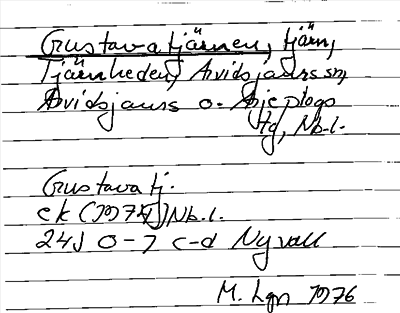 Gustavatjärnen, tjärn,
Tjärnheden, Arvidsjaurs sn,
Arvidsjaurs o. Arjeplogs
tg, Nb.l.
Gustavatj.
ek (1974) Nb.l.
24J 0-7 c-d Nyvall
M. Lgn 1976